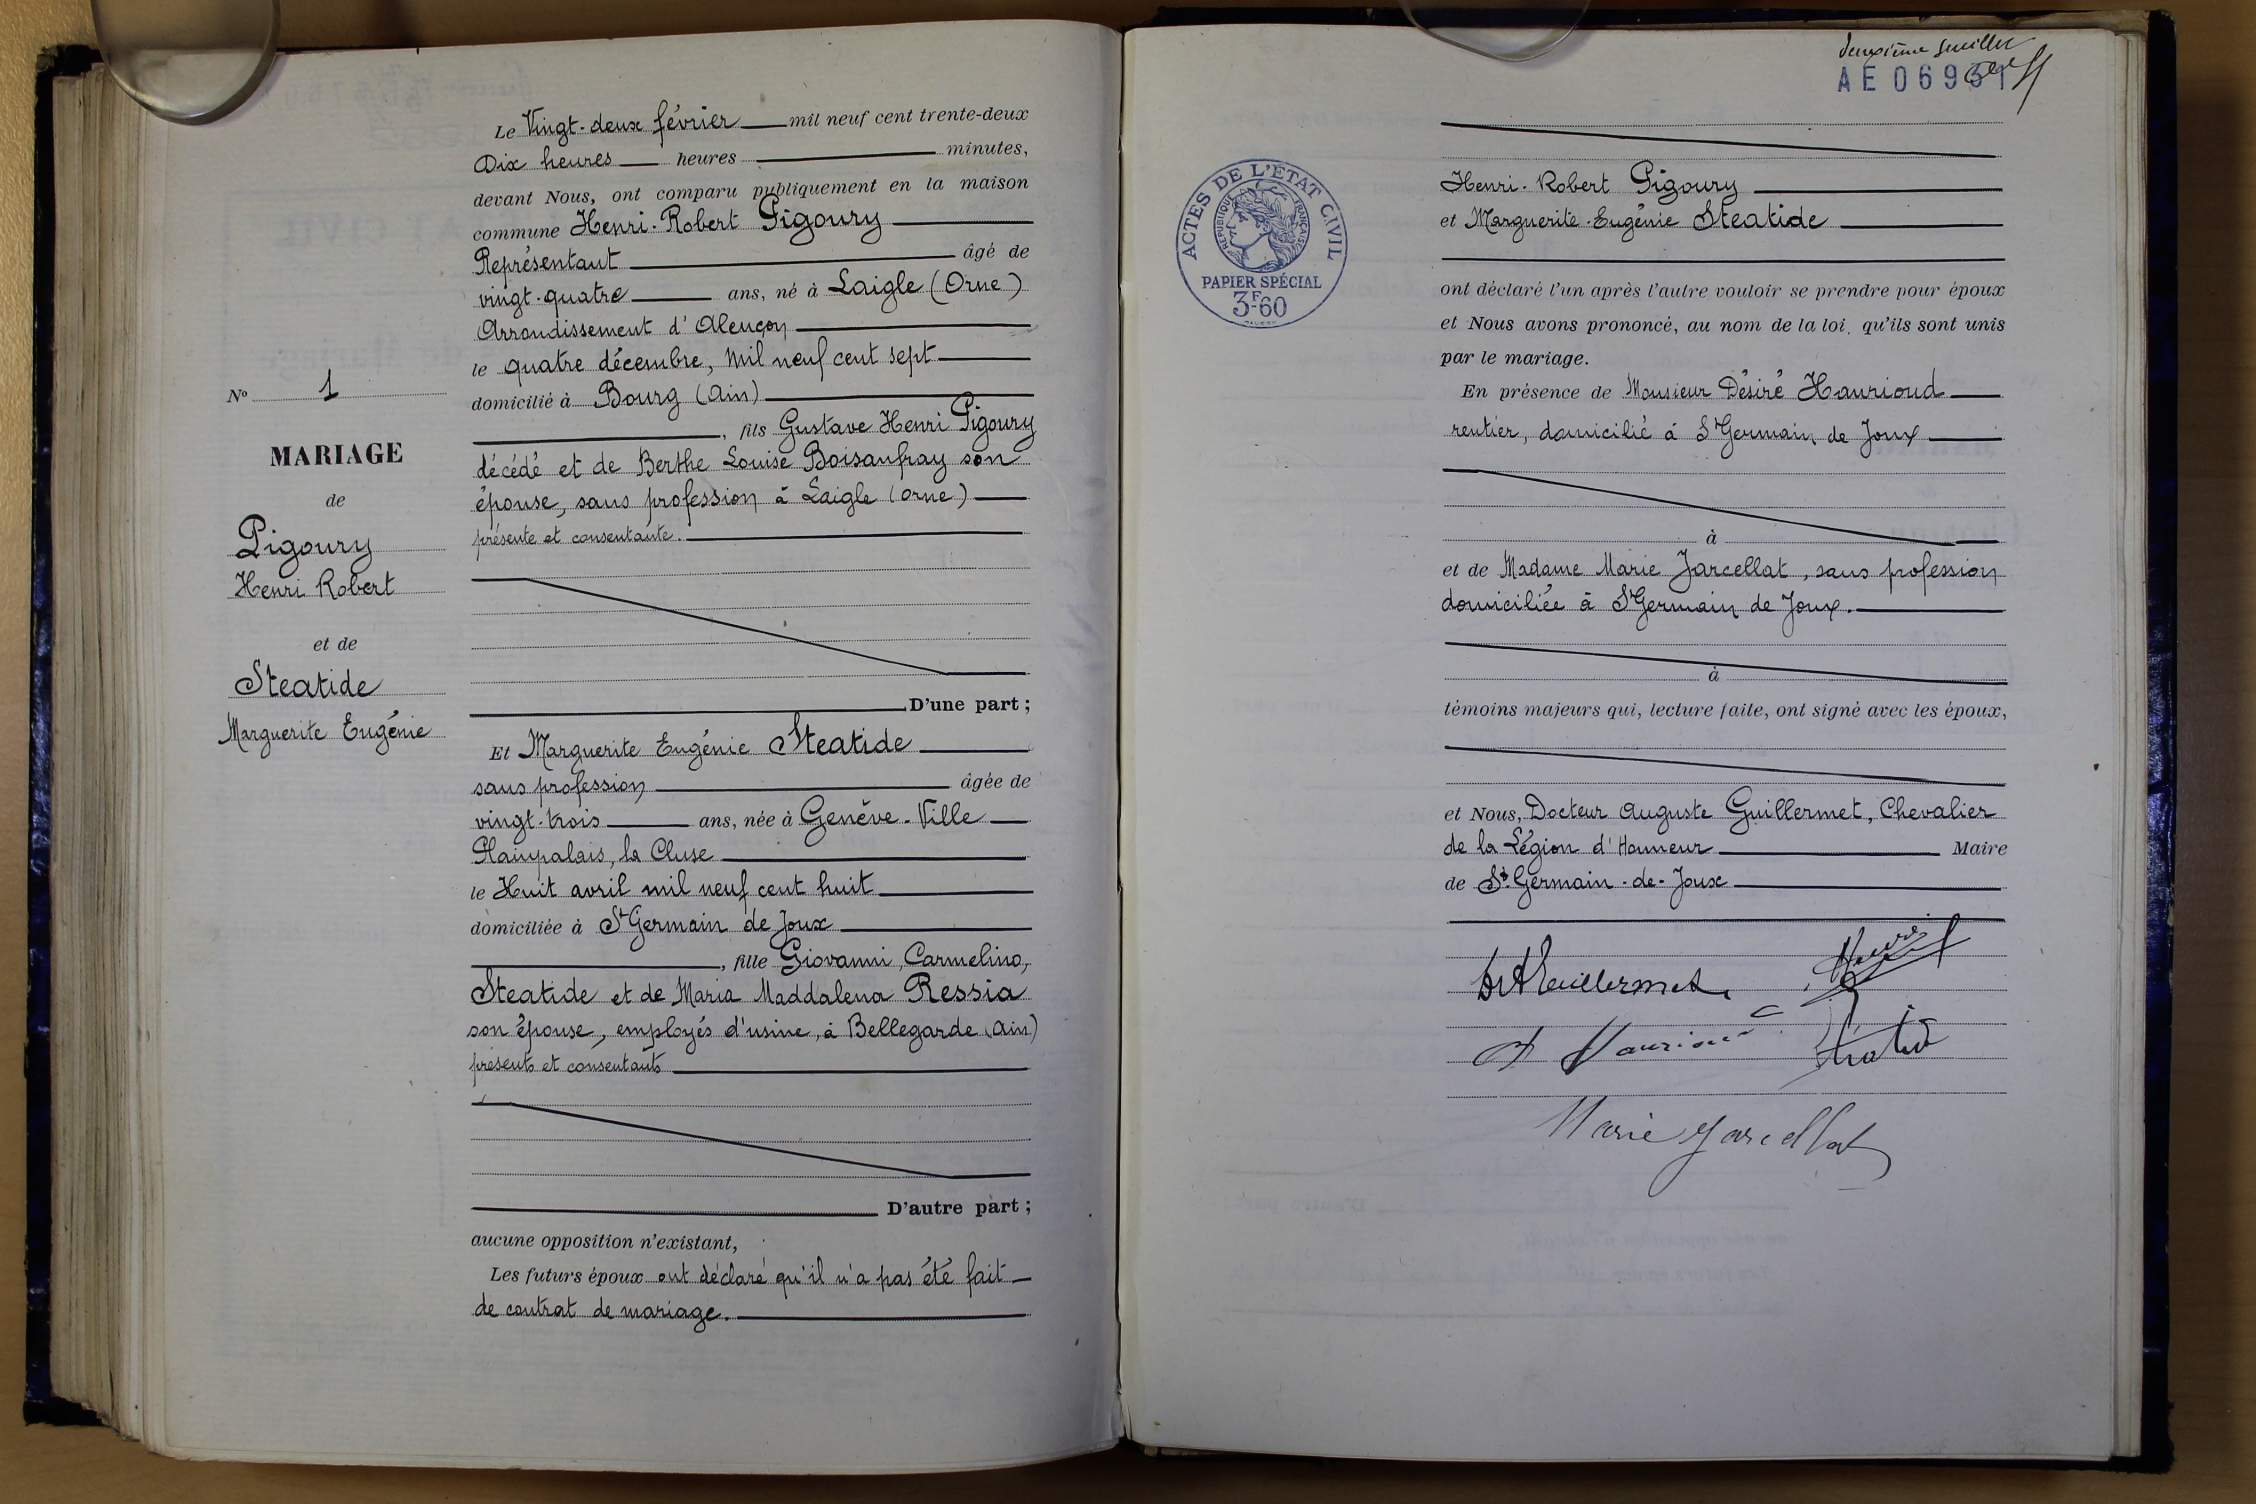 Le Vingt-deux février mil neuf cent trente-deux
Dix heures heures minutes,
devant Nous, ont comparu publiquement en la maison
commune Henri-Robert Pigoury
Représentant âgé de
vingt-quatre ans, né à Laigle (Orne)
Arrondissement d'Alençon
le quatre décembre, mil neuf cent sept
domicilié à Bourg (Ain)
, fils Gustave Henri Pigoury
décédé et de Berthe Louise Boisaufray son
épouse, sans profession à Laigle (Orne)
présente et consentante.
D'une part ;
Et Marguerite Eugénie Steatide
sans profession âgée de
vingt-trois ans, née à Genève-Ville
Plainpalais, la Cluse
le Huit avril mil neuf cent huit
domiciliée à St Germain de Joux
, fille Giovanni, Carmelino,
Steatide et de Maria Maddalena Ressia
son épouse, employés d'usine, à Bellegarde (Ain)
présents et consentants
D'autre part ;
aucune opposition n'existant,
Les futurs époux ont déclaré qu'il n'a pas été fait
de contrat de mariage.
No 1
MARIAGE
de
Pigoury
Henri Robert
et de
Steatide
Marguerite Eugénie
deuxième feuillet
AE 06931
ACTES DE L'ÉTAT CIVIL
RÉPUBLIQUE FRANÇAISE
PAPIER SPÉCIAL
3F-60
Henri-Robert Pigoury
et Marguerite-Eugénie Steatide
ont déclaré l'un après l'autre vouloir se prendre pour époux
et Nous avons prononcé, au nom de la loi, qu'ils sont unis
par le mariage.
En présence de Monsieur Désiré Haurioud
rentier, domicilié à St Germain de Joux
à
et de Madame Marie Jarcellat, sans profession
domiciliée à St Germain de Joux.
à
témoins majeurs qui, lecture faite, ont signé avec les époux,
et Nous, Docteur Auguste Guillermet, Chevalier
de la Légion d'Honneur Maire
de St-Germain-de-Joux
Dr A Guillermet
Marie Jarcellat